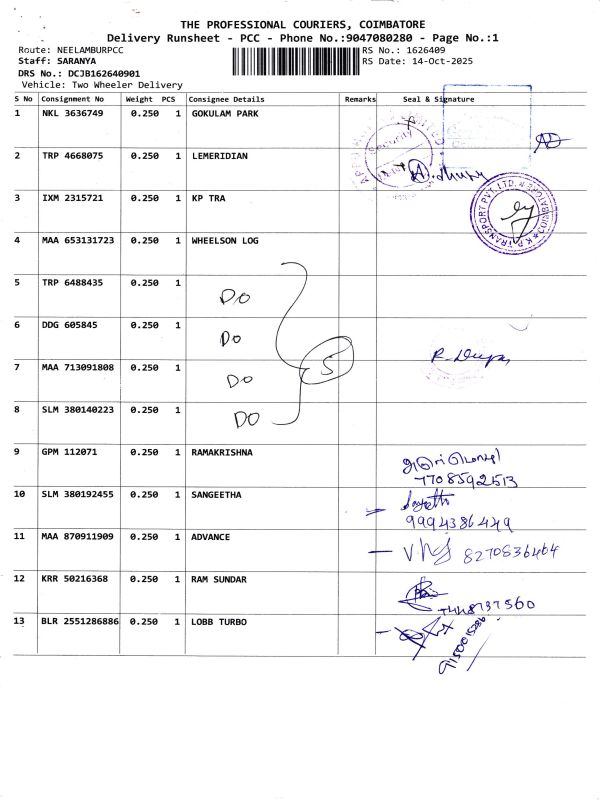 THE PROFESSIONAL COURIERS, COIMBATORE
Delivery Runsheet - PCC - Phone No.:9047080280 - Page No.:1
Route: NEELAMBURPCC RS No.: 1626409
Staff: SARANYA RS Date: 14-Oct-2025
DRS No.: DCJB162640901
Vehicle: Two Wheeler Delivery
S No Consignment No Weight PCS Consignee Details Remarks Seal & Signature
1 NKL 3636749 0.250 1 GOKULAM PARK
Security
2 TRP 4668075 0.250 1 LEMERIDIAN
3 IXM 2315721 0.250 1 KP TRA
K.P. TRANSPORT PVT. LTD. COIMBATORE
4 MAA 653131723 0.250 1 WHEELSON LOG
5 TRP 6488435 0.250 1 DO
6 DDG 605845 0.250 1 DO
7 MAA 713091808 0.250 1 DO 5
8 SLM 380140223 0.250 1 DO
9 GPM 112071 0.250 1 RAMAKRISHNA
7708592513
10 SLM 380192455 0.250 1 SANGEETHA
9994386449
11 MAA 870911909 0.250 1 ADVANCE 8270836464
12 KRR 50216368 0.250 1 RAM SUNDAR
7448737560
13 BLR 2551286886 0.250 1 LOBB TURBO